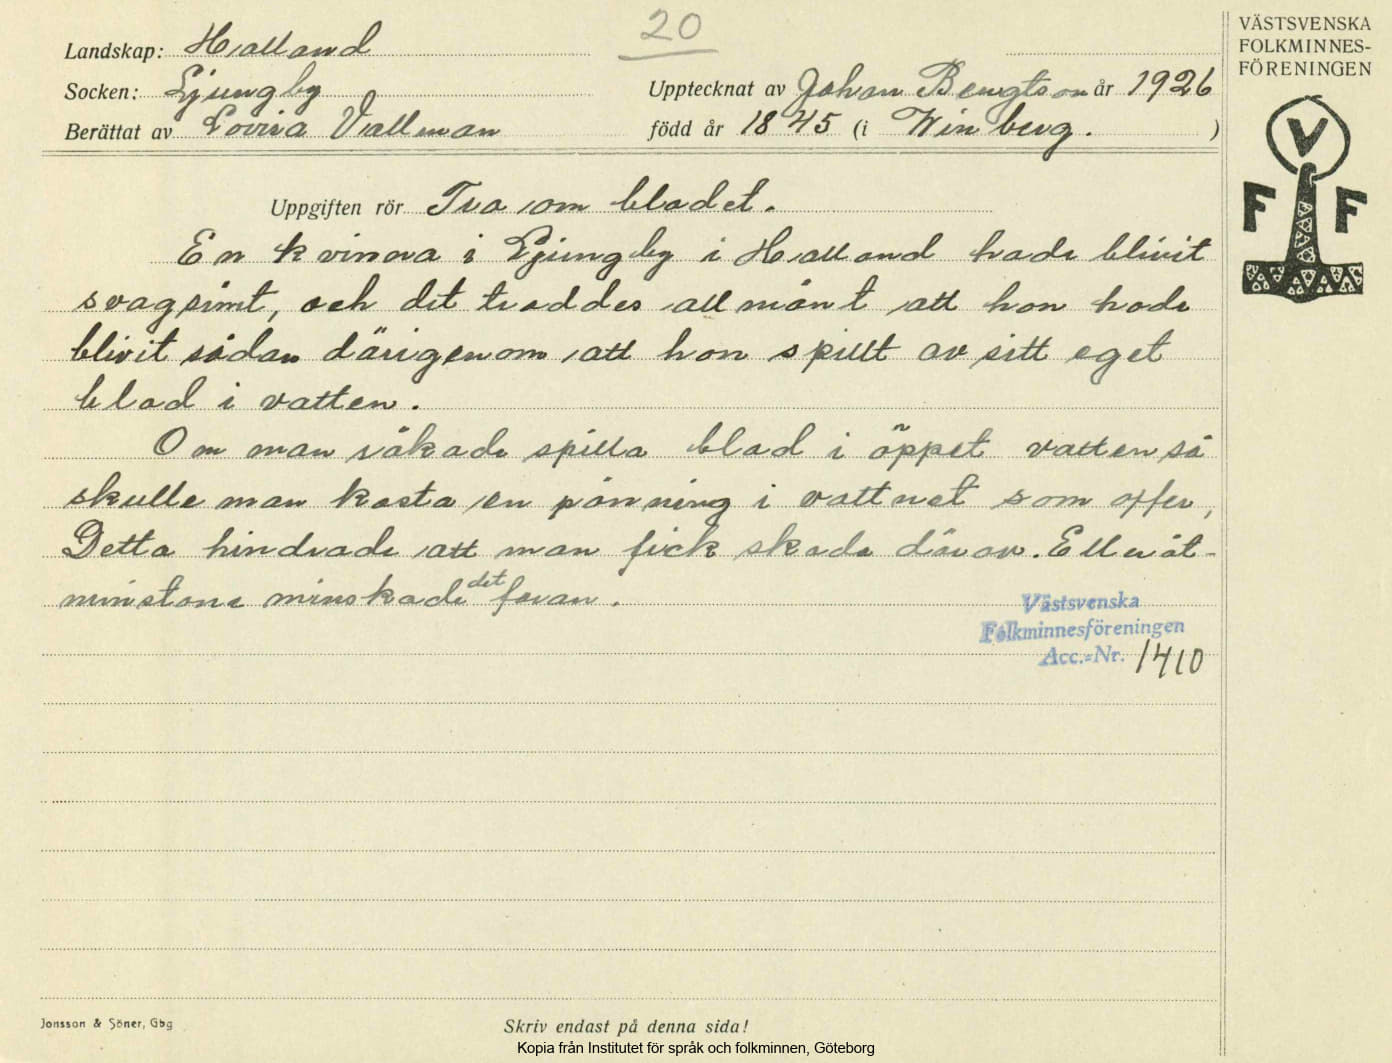 20
VÄSTSVENSKA
FOLKMINNES-
FÖRENINGEN
V
F F
Landskap: Halland
Socken: Ljungby Upptecknat av Johan Bengtson år 1926
Berättat av Lovisa Vallman född år 1845 (i Winberg. )
Uppgiften rör Tro om blodet.
En kvinna i Ljungby i Halland hade blivit
svagsimt, och det troddes allmänt att hon hade
blivit sådan därigenom att hon spillt av sitt eget
blod i vatten.
Om man råkade spilla blod i öppet vatten så
skulle man kasta en pänning i vattnet som offer,
Detta hindrade att man fick skada därav. Eller åt-
minstone minskade det faran.
Västsvenska
Folkminnesföreningen
Acc.-Nr. 1410
Jonsson & Söner, Gbg
Skriv endast på denna sida!
Kopia från Institutet för språk och folkminnen, Göteborg